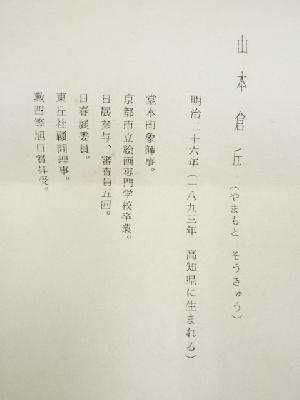 山本倉丘（やまもと そうきゅう）
明治二十六年（一八九三年 高知県に生まれる）
堂本印象師事。
京都市立絵画専門学校卒業。
日展参与、審査員五回。
日春展委員。
東丘社顧問理事。
勲四等旭日賞拝受。